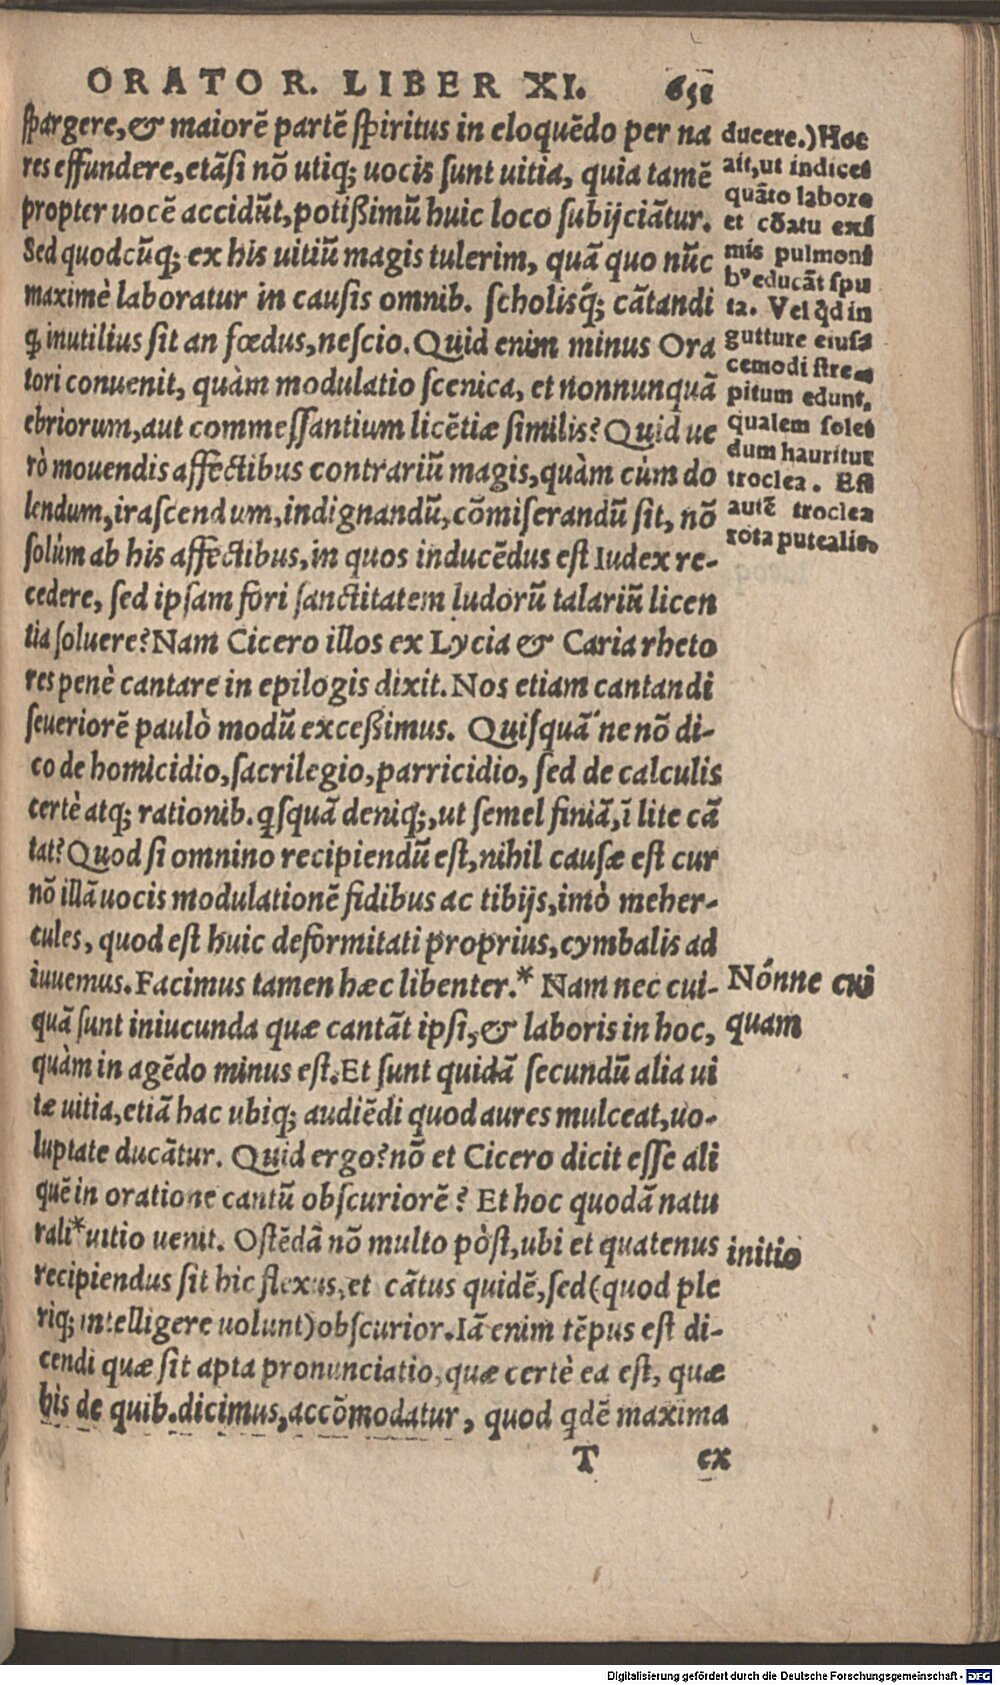 ORATOR. LIBER XI. 651
ſpargere, & maiorẽ partẽ ſpiritus in eloquẽdo per na
res effundere, etãſi nõ utiq; uocis ſunt uitia, quia tamẽ
propter uocẽ accidũt, potißimũ huic loco ſubijciãtur.
Sed quodcũq; ex his uitiũ magis tulerim, quã quo nũc
maximè laboratur in cauſis omnib. ſcholisq́; cãtandi
q̃ inutilius ſit an fœdus, neſcio. Quid enim minus Ora
tori conuenit, quàm modulatio ſcenica, et nonnunquã
ebriorum, aut commeſſantium licẽtiæ ſimilis? Quid ue
rò mouendis affectibus contrariũ magis, quàm cùm do
lendum, iraſcendum, indignandũ, cõmiſerandũ ſit, nõ
ſolùm ab his affectibus, in quos inducẽdus eſt Iudex re-
cedere, ſed ipſam fori ſanctitatem ludorũ talariũ licen
tia ſoluere? Nam Cicero illos ex Lycia & Caria rheto
res penè cantare in epilogis dixit. Nos etiam cantandi
ſeueriorẽ paulò modũ exceßimus. Quiſquã ne nõ di-
co de homicidio, ſacrilegio, parricidio, ſed de calculis
certè atq; rationib. q̃ſquã deniq;, ut ſemel finiã, ĩ lite cã
tat? Quod ſi omnino recipiendũ eſt, nihil cauſæ eſt cur
nõ illã uocis modulationẽ fidibus ac tibijs, imò meher-
cules, quod eſt huic deformitati proprius, cymbalis ad
iuuemus. Facimus tamen hæc libenter.* Nam nec cui-
quã ſunt iniucunda quæ cantãt ipſi, & laboris in hoc,
quàm in agẽdo minus eſt. Et ſunt quidã ſecundũ alia ui
tæ uitia, etiã hac ubiq; audiẽdi quod aures mulceat, uo-
luptate ducãtur. Quid ergo? nõ et Cicero dicit eſſe ali
quẽ in oratione cantũ obſcuriorẽ? Et hoc quodã natu
rali* uitio uenit. Oſtẽdã nõ multo pòſt, ubi et quatenus
recipiendus ſit hic flexus, et cãtus quidẽ, ſed (quod ple
riq; intelligere uolunt) obſcurior. Iã enim tẽpus eſt di-
cendi quæ ſit apta pronunciatio, quæ certè ea eſt, quæ
hìs de quib. dicimus, accõmodatur, quod q̃dẽ maxima
T ex
ducere.) Hoc
ait, ut indicet
quãto labore
et cõatu exi
mis pulmoni
bꝰ educãt ſpu
ta. Vel q̃d in
gutture eiuſ
cemodi ſtre-
pitum edunt,
qualem ſolet
dum hauritur
troclea. Eſt
autẽ troclea
rota putealis.
Nónne cui
quam
initio
Digitalisierung gefördert durch die Deutsche Forschungsgemeinschaft - DFG